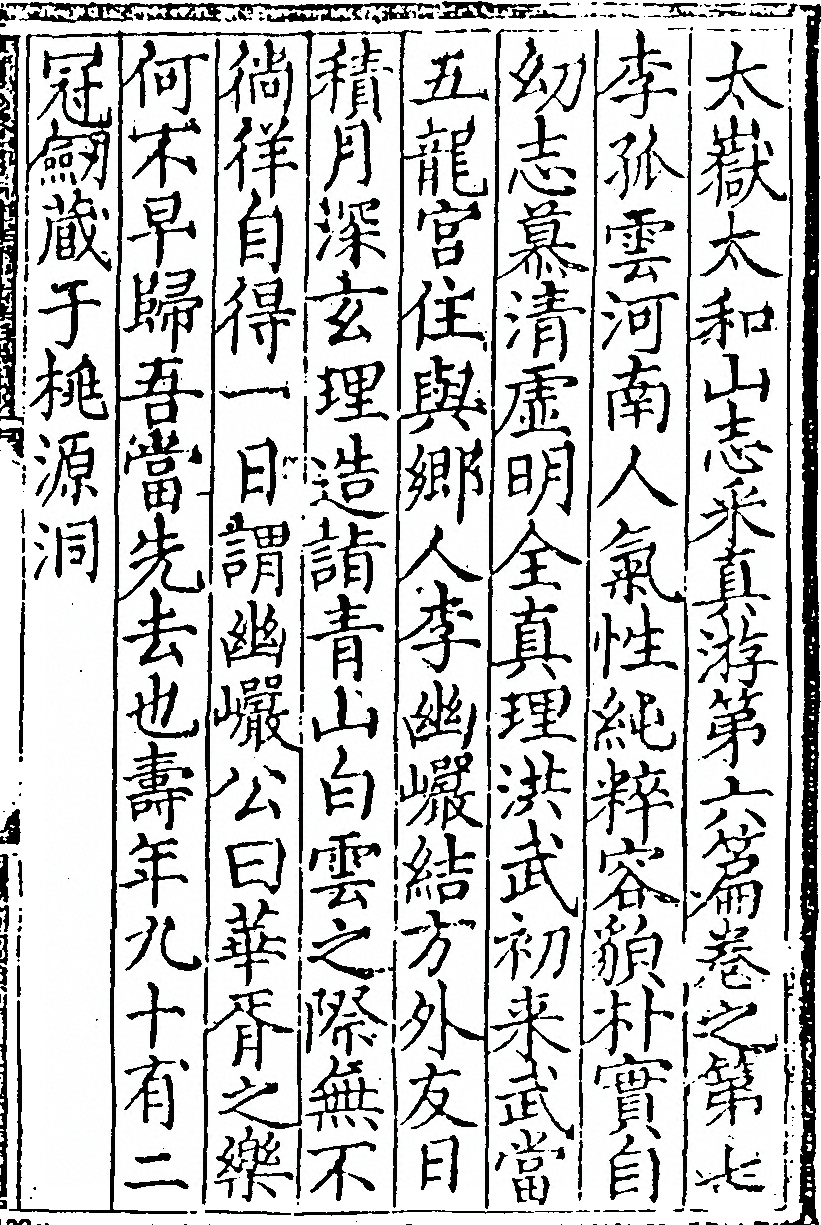 太嶽太和山志采真游第六篇卷之第七
李孤雲河南人氣性純粹容貌朴實自
幼志慕清虛明全真理洪武初来武當
五龍宮住與鄉人李幽巖結方外友日
積月深玄理造詣青山白雲之際無不
徜徉自得一日謂幽巖公曰華胥之樂
何不早歸吾當先去也壽年九十有二
冠劒蔵于桃源洞